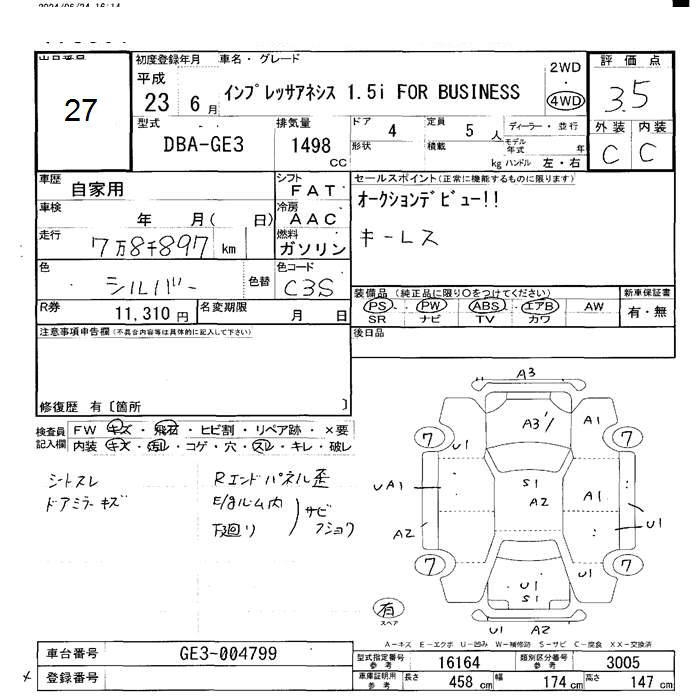 2024/06/24 16:14
出品番号
27
初度登録年月
平成
23 6 月
車名・グレード
インプレッサアネシス 1.5i FOR BUSINESS
2WD
・
4WD
評価点
3.5
外装 内装
C C
型式
DBA-GE3
排気量
1498
CC
ドア
4
形状
定員
5 人
積載
kg
ディーラー・並行
モデル年式 年
ハンドル 左・右
車歴
自家用
シフト
FAT
車検
年 月( 日)
冷房
AAC
走行
7万8千897 km
燃料
ガソリン
色
シルバー
色替
色コード
C3S
R券
11,310 円
名変期限
月 日
セールスポイント(正常に機能するものに限ります)
オークションデビュー!!
キーレス
装備品 (純正品に限り○をつけてください)
PS・PW・ABS・エアB・AW
SR ナビ TV カワ
新車保証書
有・無
後日品
注意事項申告欄(不具合内容等は具体的に記入して下さい)
修復歴 有〔箇所 〕
検査員記入欄
FW キズ・飛石・ヒビ割・リペア跡・×要
内装 キズ・汚レ・コゲ・穴・スレ・キレ・破レ
シートスレ
ドアミラーキズ
Rエンドパネル歪
E/gルーム内
下廻り
サビ
フショク
A3
A3
A1
7
7
U1
S1
A2
UA1
A1
A2
U1
7
7
U1
U1
S1
有
スペア
U1 A2
A-キズ E-エクボ U-凹み W-補修跡 S-サビ C-腐食 XX-交換済
車台番号
GE3-004799
登録番号
型式指定番号 参考
16164
類別区分番号 参考
3005
車庫証明用 参考
長さ 458 cm 幅 174 cm 高さ 147 cm